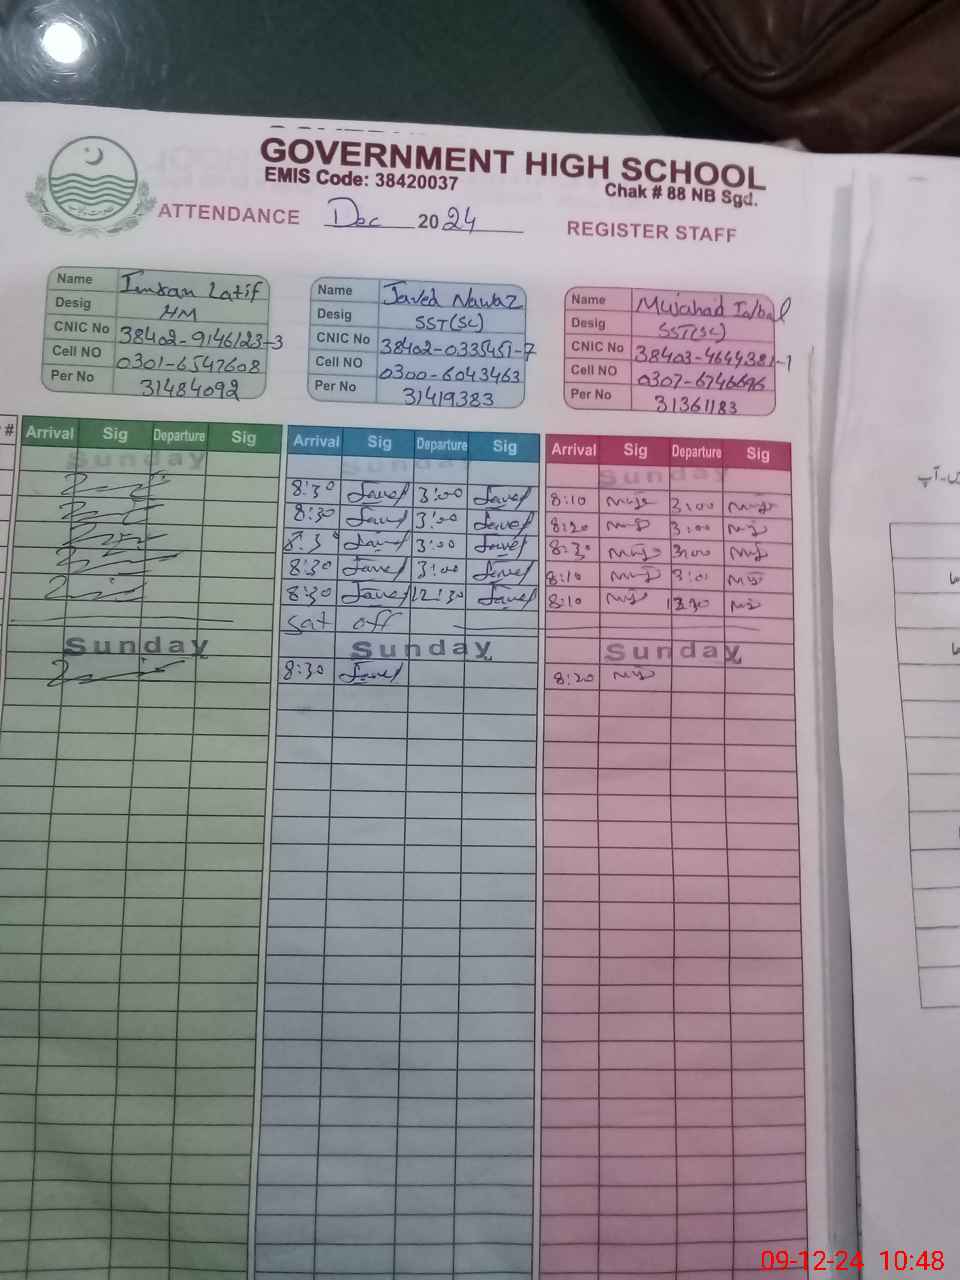 GOVERNMENT HIGH SCHOOL
EMIS Code: 38420037
Chak # 88 NB Sgd.
ATTENDANCE Dec 2024 REGISTER STAFF
Name Imran Latif
Desig HM
CNIC No 38402-9146123-3
Cell NO 0301-6547608
Per No 31484092
Name Javed Nawaz
Desig SST(SC)
CNIC No 38402-0335451-7
Cell NO 0300-6043463
Per No 31419383
Name Mujahad Iqbal
Desig SST(SC)
CNIC No 38403-4644381-1
Cell NO 0307-6746696
Per No 31361183
# Arrival Sig Departure Sig Arrival Sig Departure Sig Arrival Sig Departure Sig
Sunday Sunday Sunday
8:30 Javed 3:00 Javed 8:10 3:00
8:30 Javed 3:00 Javed 8:20 3:00
8:30 Javed 3:00 Javed 8:30 3:00
8:30 Javed 3:00 Javed 8:10 3:01
8:30 Javed 12:30 Javed 8:10 12:30
Sat off
Sunday Sunday Sunday
8:30 Javed 8:20
09-12-24 10:48